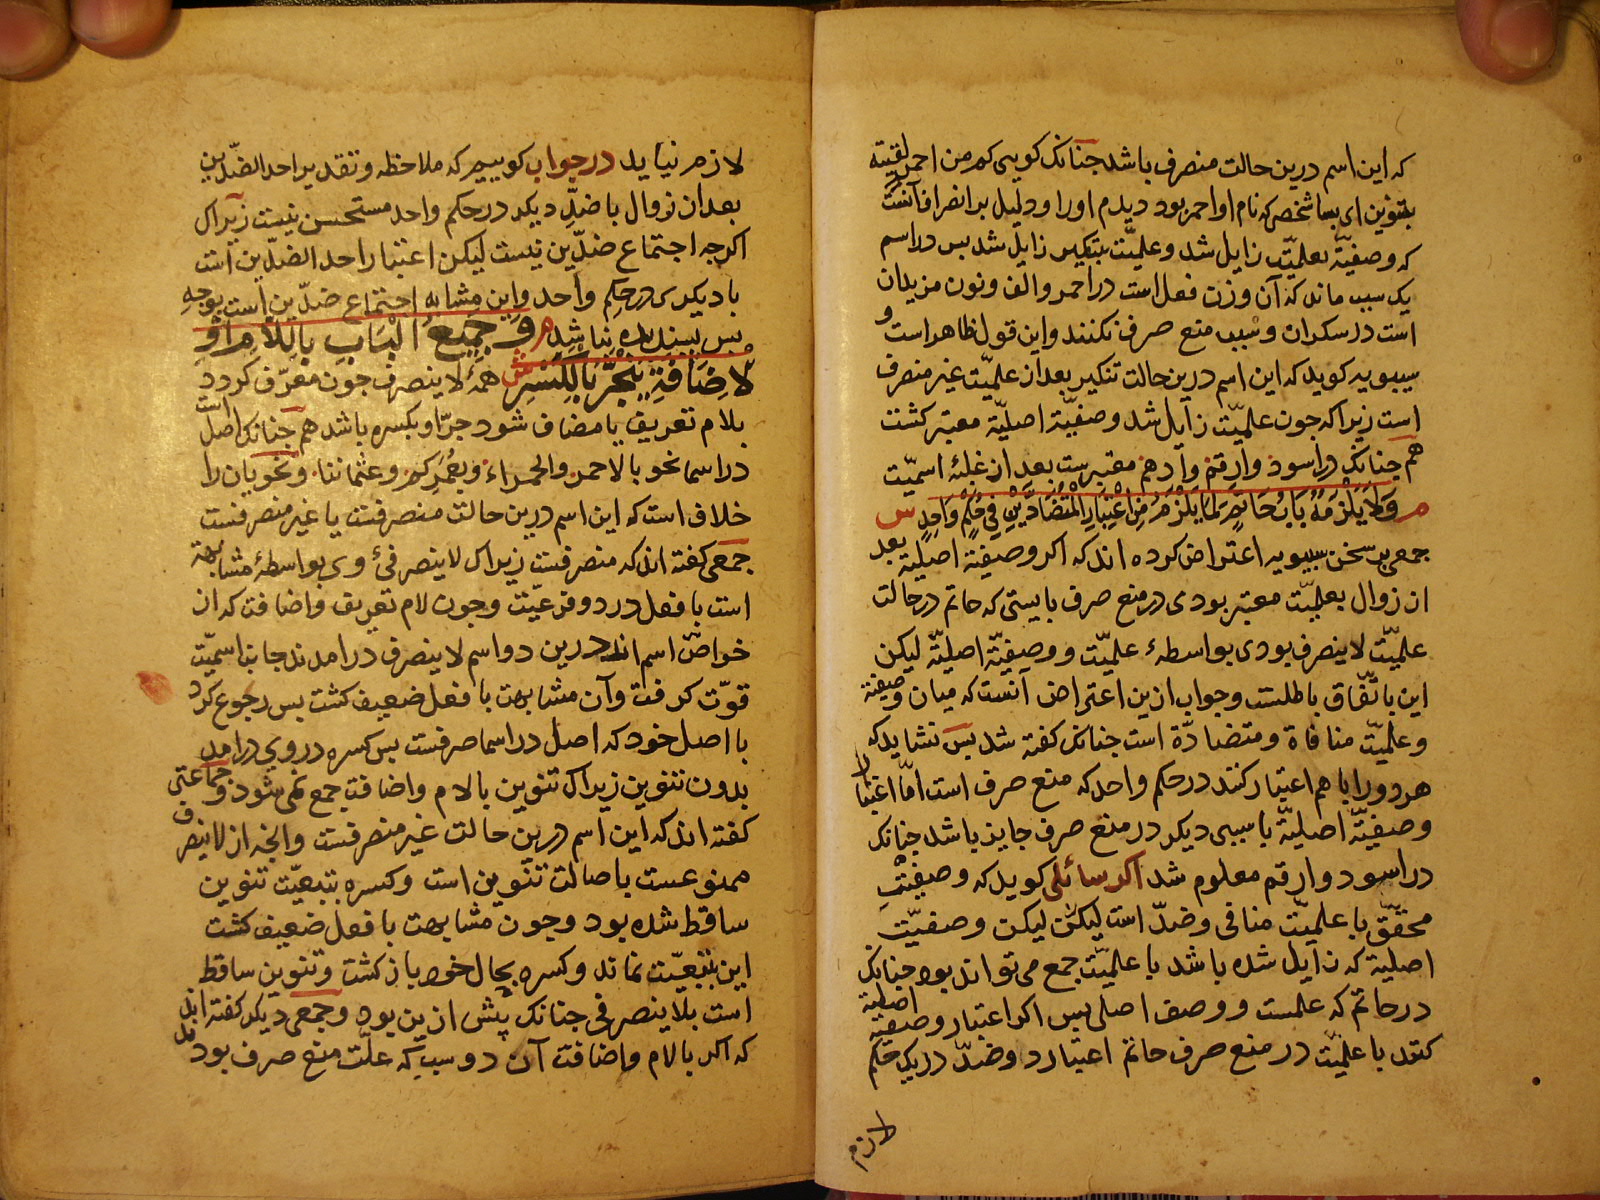 که این اسم درین حالت منصرف باشد جنانک کویی کم من احمر لقیته
بتنوین ای بسا شخص که نام او احمر بود دیدم اورا و دلیل بر انصراف آنست
که وصفیّة بعلمیّت زایل شد و علمیّت بتنکیر زایل شد بس در اسم
یک سبب ماند که آن وزن فعل است در احمر و الف و نون مزیدان
است در سکران و سبب منع صرف نکنند و این قول ظاهر است و
سیبویه کوید که این اسم درین حالت تنکیر بعد از علمیّت غیر منصرف
است زیراکه جون علمیّت زایل شد وصفیّة اصلیّة معتبر کشت
هم جنانک در اسود و ارقم و ادهم معتبرست بعد از غلبهٔ اسمیّت
م وَلَا یَلْزَمُهُ بَابُ حَاتِمٍ لِمَا یَلْزَمُ مِنْ اعْتِبَارِ الْمُتَضَادَّیْنِ فِی حُکْمٍ وَاحِدٍ س
جمعی بر سخن سیبویه اعتراض کرده اند که اکر وصفیّة اصلیّة بعد
از زوال بعلمیّت معتبر بودی در منع صرف بایستی که حاتم در حالت
علمیّت لاینصرف بودی بواسطهٔ علمیّت و وصفیّة اصلیّة لیکن
این باتّفاق باطلست و جواب ازین اعتراض آنست که میان وصفیّة
و علمیّت منافاة و متضادّة است جنانک کفته شد بس نشاید که
هر دو را با هم اعتبار کنند در حکم واحد که منع صرف است امّا اعتبار
وصفیّة اصلیّة با سببی دیکر در منع صرف جایز باشد جنانک
در اسود و ارقم معلوم شد اکر سائلی کوید که وصفیّت
محقّق با علمیّت منافی و ضدّ است لیکن لیکن وصفیّت
اصلیّة که زایل شده باشد با علمیّت جمع می تواند بود جنانک
در حاتم که علمست و وصف اصلی بس اکر اعتبار وصفیّة اصلیّة
کنند با علمیّت در منع صرف حاتم اعتبار دو ضدّ در یک حکم
لازم
لازم نیاید در جواب کوییم که ملاحظه و تقدیر احد الضدّین
بعد از زوال با ضدّ دیکر در حکم واحد مستحسن نیست زیراک
اکرجه اجتماع ضدّین نیست لیکن اعتبار احد الضدّین است
با دیکری در حکم واحد و این مشابه اجتماع ضدّین است بوجه
بس بسندیده نباشد م وَجَمِیعُ الْبَابِ بِاللَّامِ اَوِ
لْاِضَافَةِ یَنْجَرُّ بِالْکَسْرِ ش همهٔ لاینصرف جون معرّف کردد
بلام تعریف یا مضاف شود جرّ او بکسره باشد هم جنانک اصل است
در اسما نحو بالاحمر والحمراء و بعُمَرِکم و عثماننا و نحویان را
خلاف است که این اسم درین حالت منصرفست یا غیر منصرفست
جمعی کفته اند که منصرفست زیراک لاینصرفیٔ وی بواسطهٔ مشابهة
است با فعل در دو فرعیّت و جون لام تعریف و اضافت که از
خواصّ اسم اند درین دو اسم لاینصرف درامدند جانب اسمیّت
قوّت کرفت و آن مشابهت با فعل ضعیف کشت بس رجوع کرد
با اصل خود که اصل در اسما صرفست بس کسره در وی درامد
بدون تنوین زیراک تنوین بالام و اضافت جمع نمی شود و جماعتی
کفته اند که این اسم درین حالت غیر منصرفست و الخه از لاینصرف
ممنوعست باصالت تنوین است و کسره بتبعیّت تنوین
ساقط شده بود و جون مشابهت با فعل ضعیف کشت
این تبعیّت نماند و کسره بحال خود باز کشت و تنوین ساقط
است بلاینصرفی جنانک پیش ازین بود و جمعی دیکر کفته اند
که اکر بالام و اضافت آن دو سبب که علّت منع صرف بود